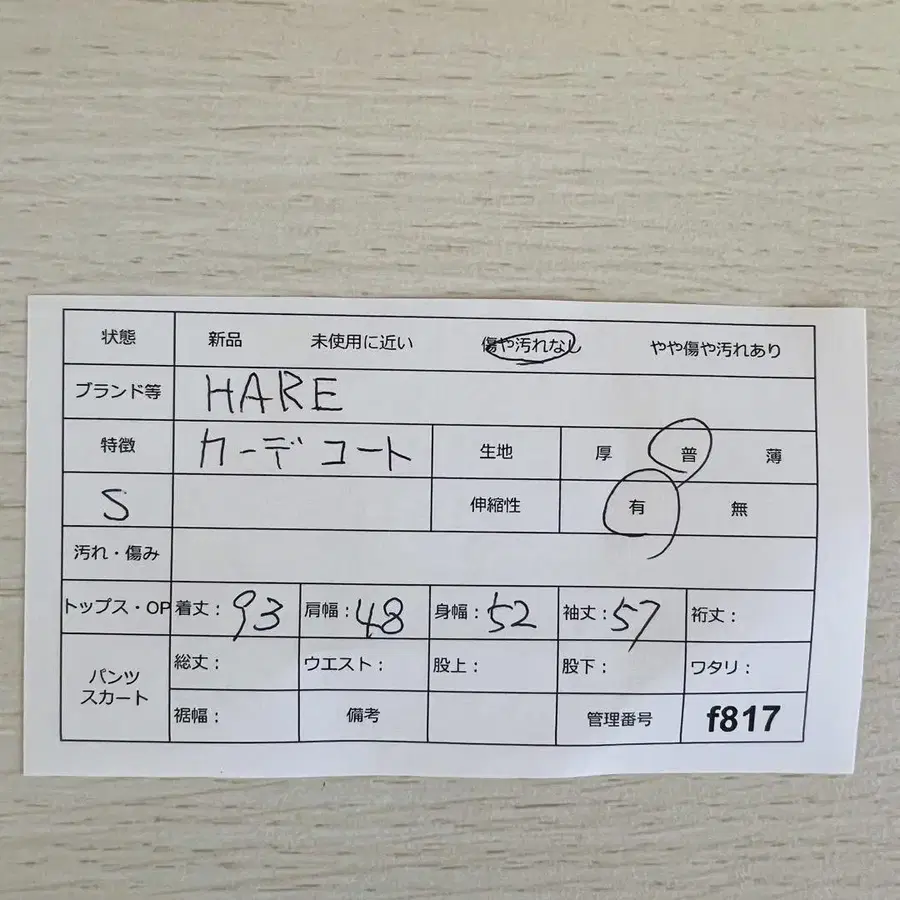 状態 新品 未使用に近い 傷や汚れなし やや傷や汚れあり
ブランド等 HARE
特徴 カーデコート 生地 厚 普 薄
S 伸縮性 有 無
汚れ・傷み
トップス・OP 着丈：93 肩幅：48 身幅：52 袖丈：57 裄丈：
パンツ スカート 総丈： ウエスト： 股上： 股下： ワタリ：
裾幅： 備考 管理番号 f817